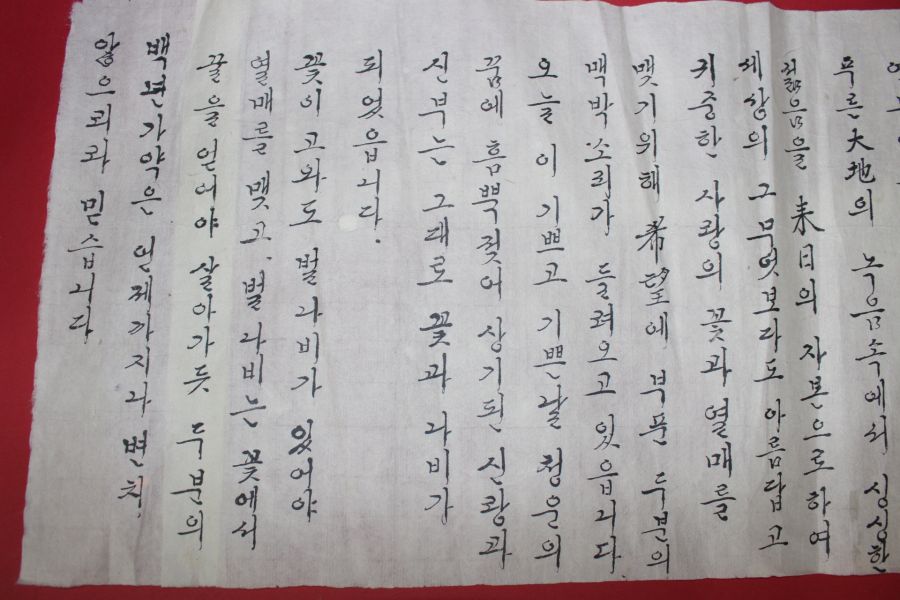 푸른 大地의 녹음속에서 싱싱한
젊음을 来日의 자본으로하여
세상의 그 무엇보다도 아름답고
귀중한 사랑의 꽃과 열매를
맺기위해 希望에 부푼 두분의
맥박소리가 들려오고 있읍니다
오늘 이 기쁘고 기쁜날 청운의
꿈에 흠뻑젖어 상기된 신랑과
신부는 그대로 꽃과 나비가
되었읍니다.
꽃이 고와도 벌 나비가 있어야
열매를 맺고, 벌 나비는 꽃에서
꿀을 얻어야 살아가듯 두분의
백년가약은 언제까지나 변치
않으리라 믿습니다